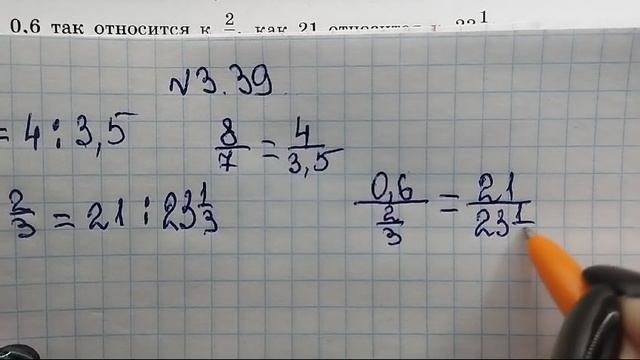 0,6 так относится к 2/ как 21 относится
№3.39
= 4 : 3,5
8/7 = 4/3,5
2/3 = 21 : 23 1/3
0,6/(2/3) = 21/23 1/